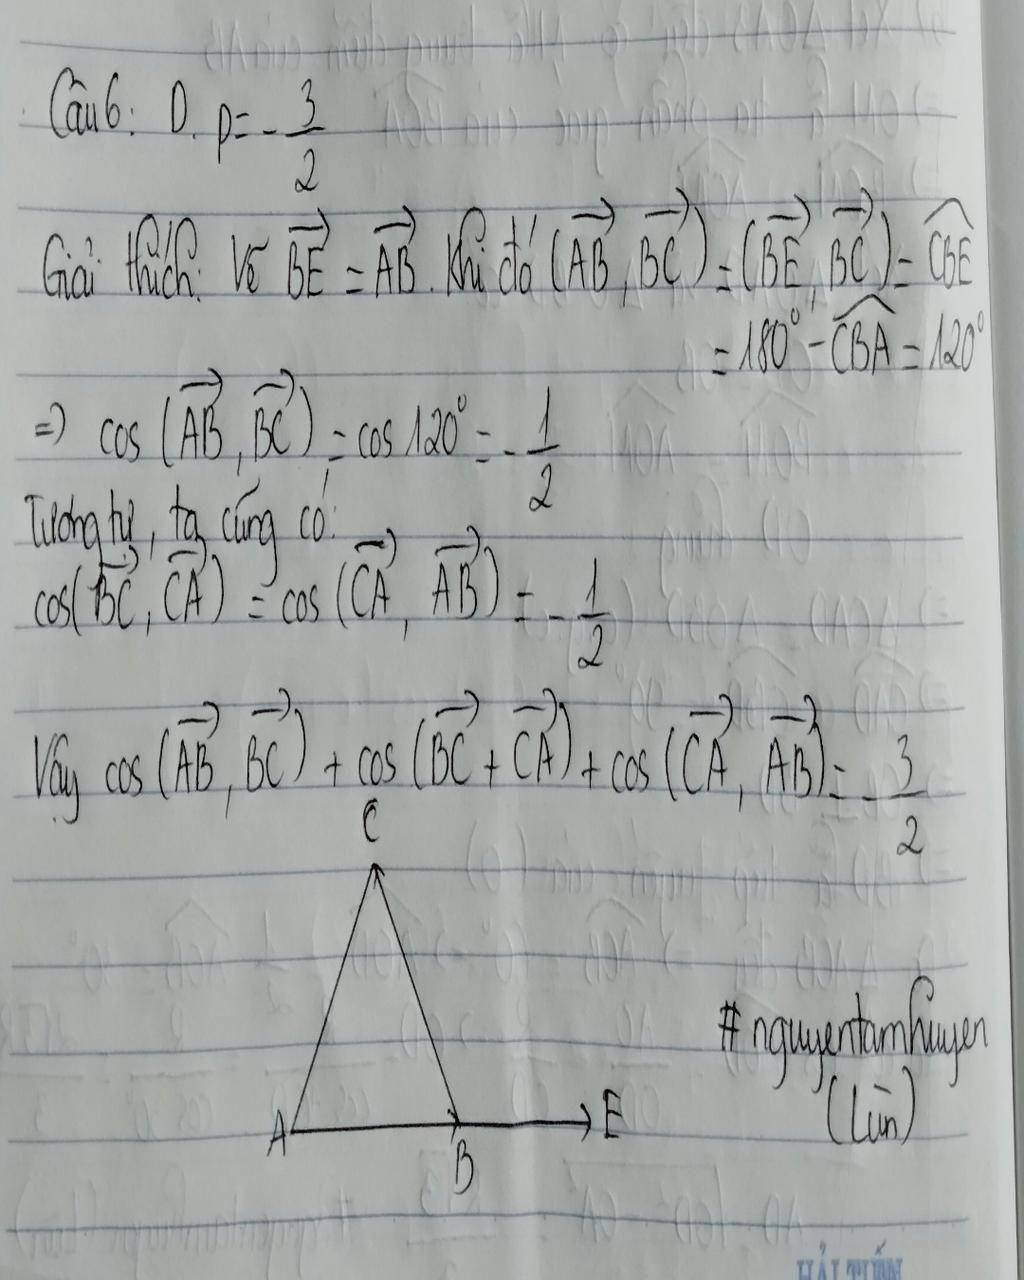 Câu 6: D. p = -3/2
Giải thích: Vẽ \overrightarrow{BE} = \overrightarrow{AB}. Khi đó (\overrightarrow{AB}, \overrightarrow{BC}) = (\overrightarrow{BE}, \overrightarrow{BC}) = \widehat{CBE}
= 180° - \widehat{CBA} = 120°
=> cos (\overrightarrow{AB}, \overrightarrow{BC}) = cos 120° = -1/2
Tương tự, ta cũng có:
cos(\overrightarrow{BC}, \overrightarrow{CA}) = cos (\overrightarrow{CA}, \overrightarrow{AB}) = -1/2
Vậy cos (\overrightarrow{AB}, \overrightarrow{BC}) + cos (\overrightarrow{BC} + \overrightarrow{CA}) + cos (\overrightarrow{CA}, \overrightarrow{AB}) = -3/2
C
#nguyentamhuyen
(Lùn)
A
B
E
HẢI TIẾN